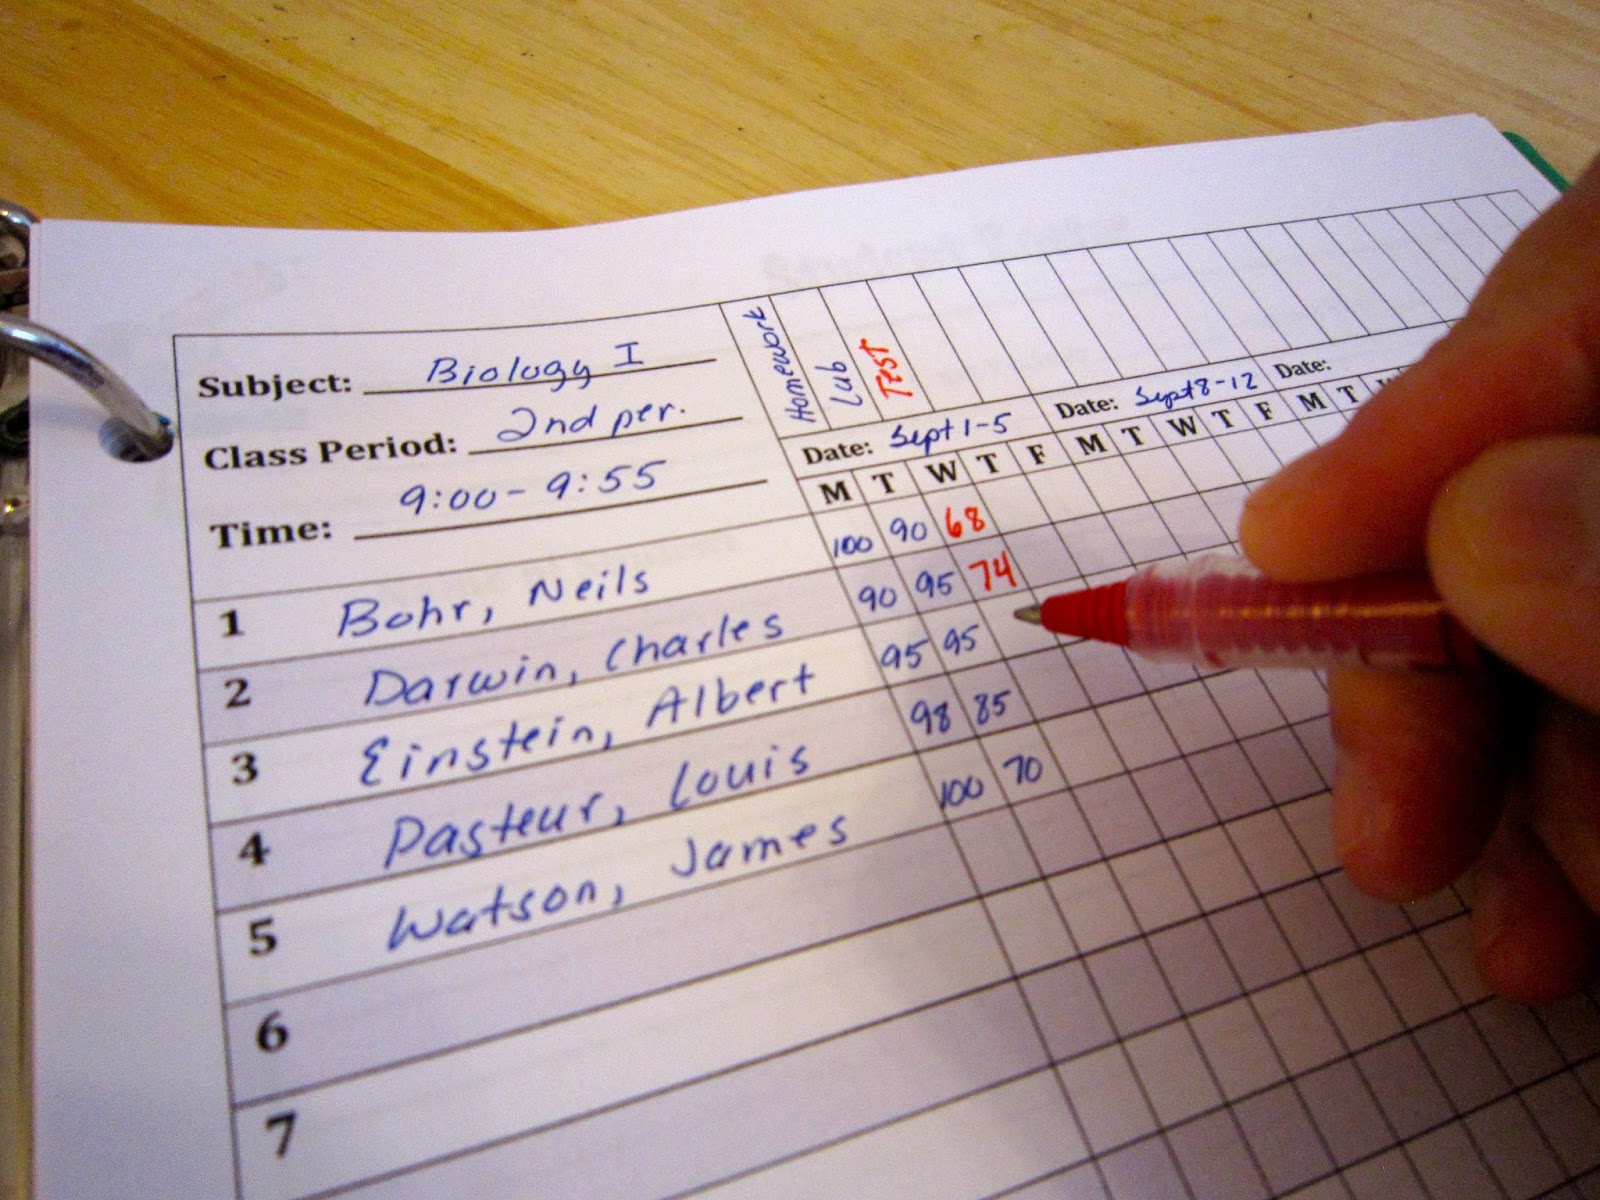 Subject: Biology I
Class Period: 2nd per.
Time: 9:00 - 9:55
Homework
Lab
Test
Date: Sept 1-5 Date: Sept 8-12 Date:
M T W T F M T W T F M T
1 Bohr, Neils 100 90 68
2 Darwin, Charles 90 95 74
3 Einstein, Albert 95 95
4 Pasteur, Louis 98 85
5 Watson, James 100 70
6
7